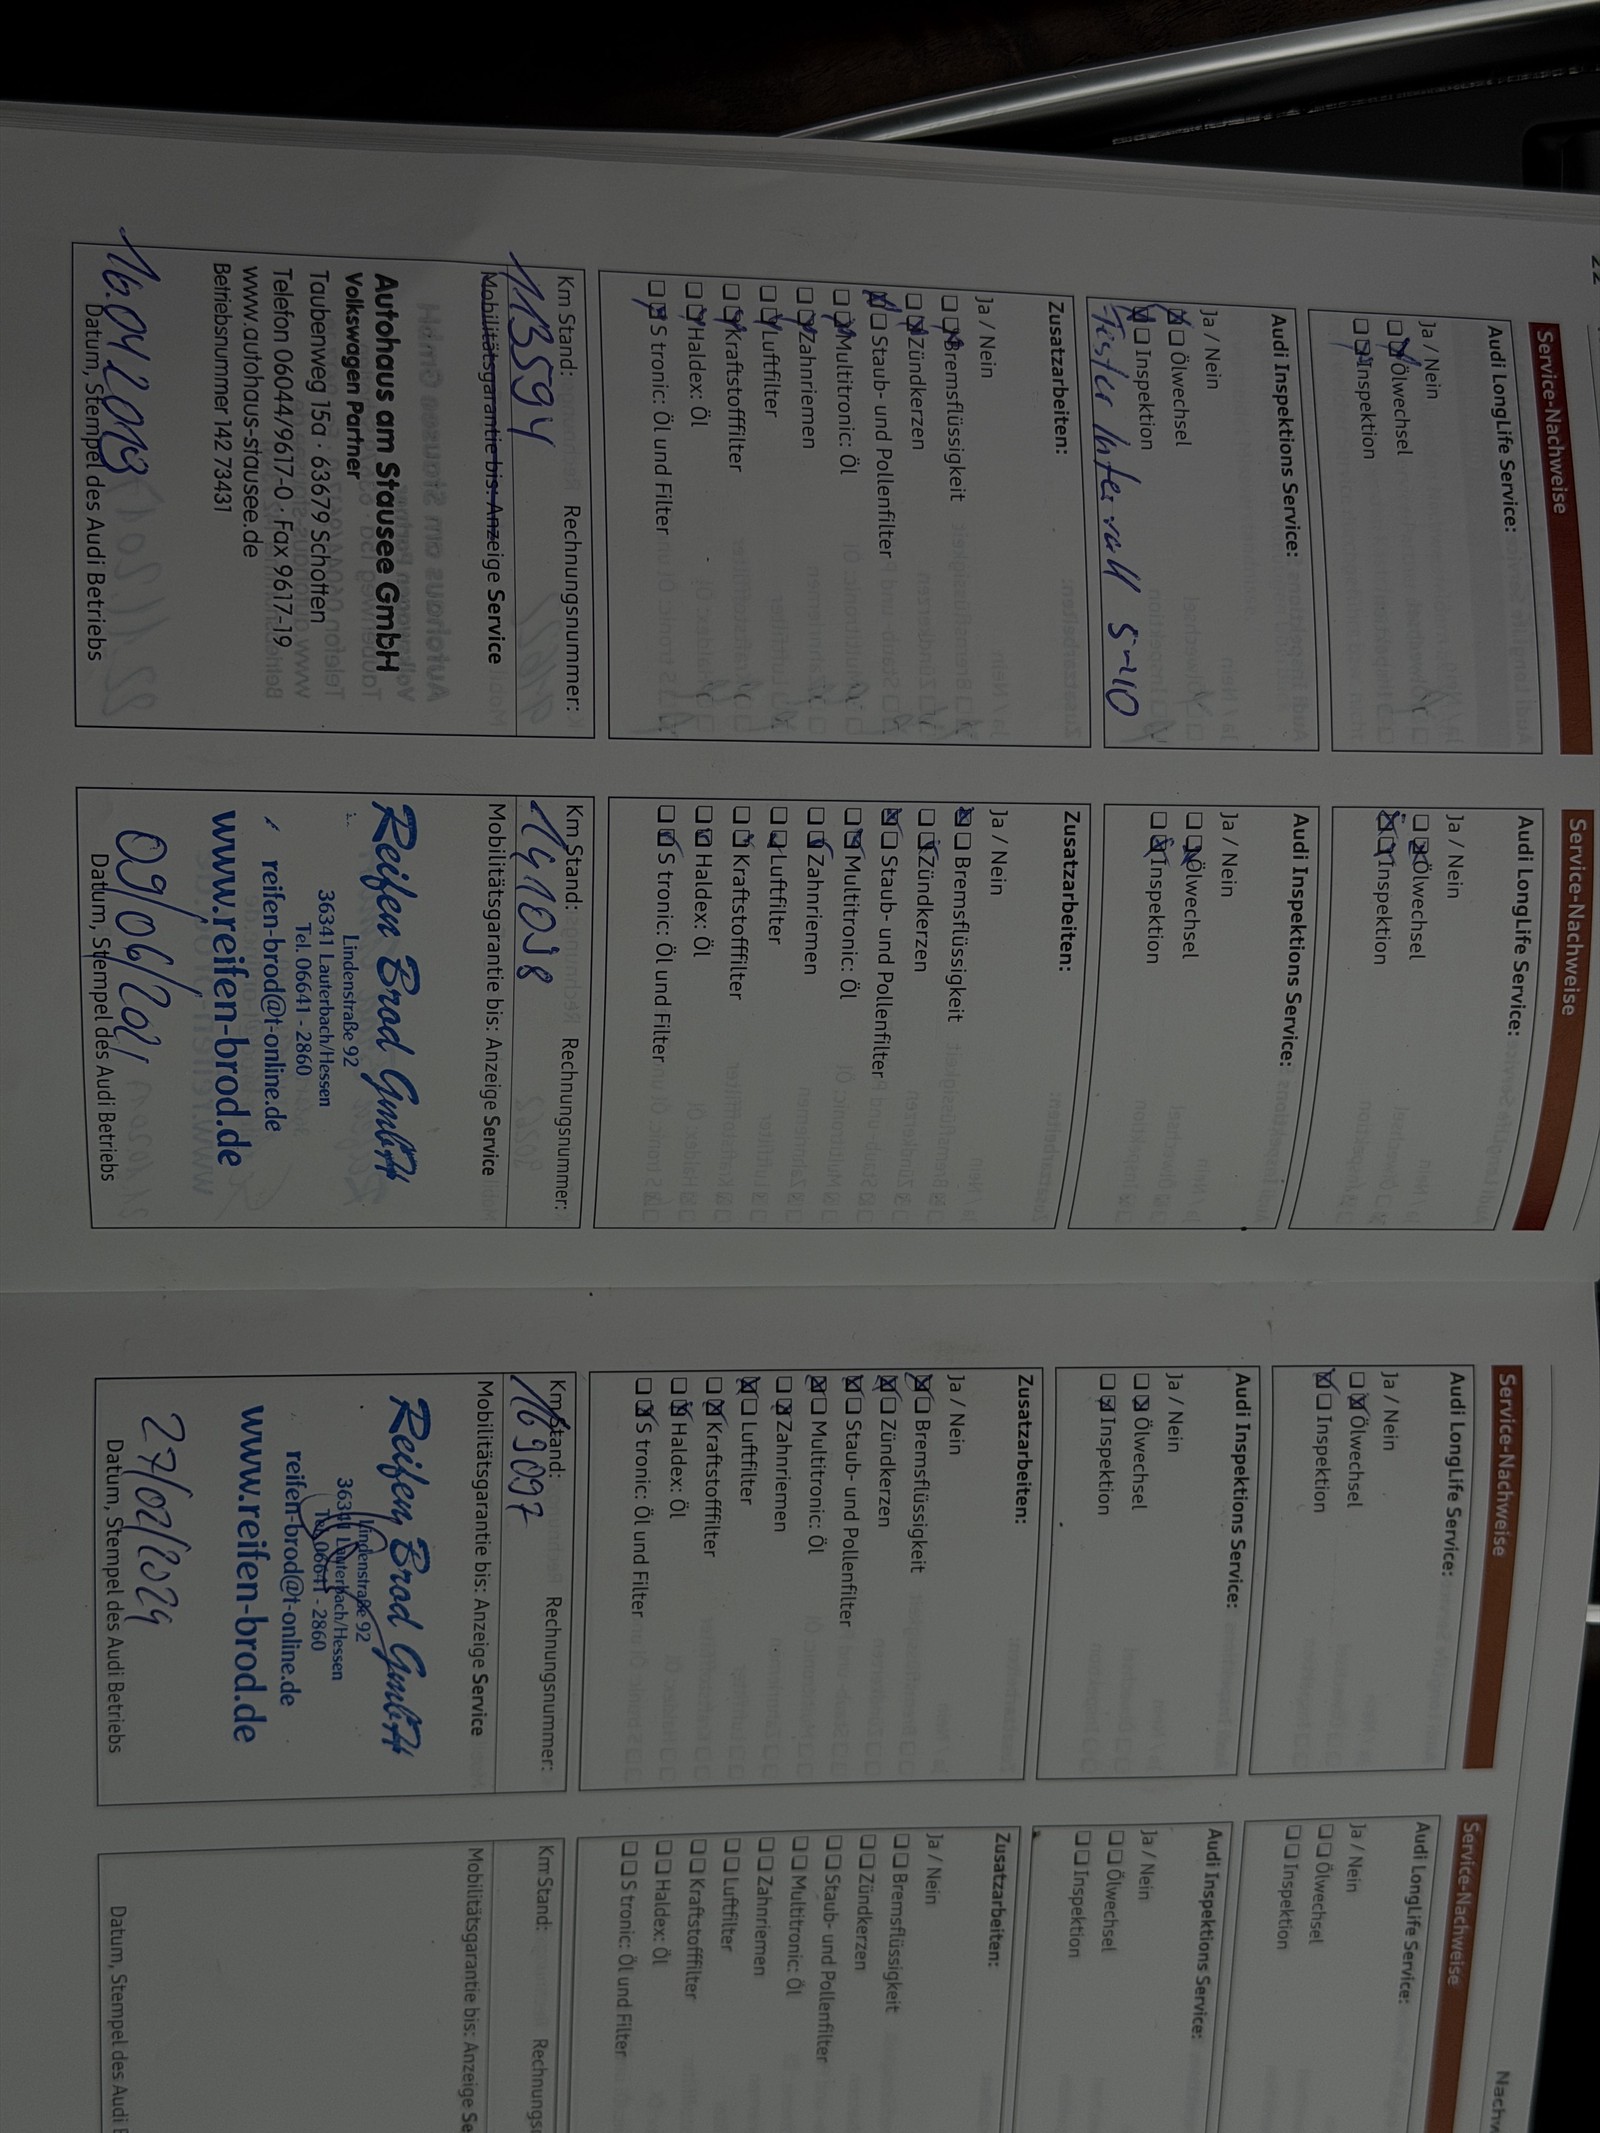 22
Service-Nachweise
Audi LongLife Service:
Ja / Nein
Ölwechsel
Inspektion
Audi Inspektions Service:
Ja / Nein
Ölwechsel
Inspektion
Zusatzarbeiten:
Ja / Nein
Bremsflüssigkeit
Zündkerzen
Staub- und Pollenfilter
Multitronic: Öl
Zahnriemen
Luftfilter
Kraftstofffilter
Haldex: Öl
S tronic: Öl und Filter
Km Stand: Rechnungsnummer:
113594
Mobilitätsgarantie bis: Anzeige Service
Autohaus am Stausee GmbH
Volkswagen Partner
Taubenweg 15a · 63679 Schotten
Telefon 06044/9617-0 · Fax 9617-19
www.autohaus-stausee.de
Betriebsnummer 142 73431
Datum, Stempel des Audi Betriebs
Service-Nachweise
Audi LongLife Service:
Ja / Nein
Ölwechsel
Inspektion
Audi Inspektions Service:
Ja / Nein
Ölwechsel
Inspektion
Zusatzarbeiten:
Ja / Nein
Bremsflüssigkeit
Zündkerzen
Staub- und Pollenfilter
Multitronic: Öl
Zahnriemen
Luftfilter
Kraftstofffilter
Haldex: Öl
S tronic: Öl und Filter
Km Stand: Rechnungsnummer:
141098
Mobilitätsgarantie bis: Anzeige Service
Reifen Brod GmbH
Lindenstraße 92
36341 Lauterbach/Hessen
Tel. 06641 - 2860
reifen-brod@t-online.de
www.reifen-brod.de
09/06/2021
Datum, Stempel des Audi Betriebs
Service-Nachweise
Audi LongLife Service:
Ja / Nein
Ölwechsel
Inspektion
Audi Inspektions Service:
Ja / Nein
Ölwechsel
Inspektion
Zusatzarbeiten:
Ja / Nein
Bremsflüssigkeit
Zündkerzen
Staub- und Pollenfilter
Multitronic: Öl
Zahnriemen
Luftfilter
Kraftstofffilter
Haldex: Öl
S tronic: Öl und Filter
Km Stand: Rechnungsnummer:
169097
Mobilitätsgarantie bis: Anzeige Service
Reifen Brod GmbH
Lindenstraße 92
36341 Lauterbach/Hessen
Tel. 06641 - 2860
reifen-brod@t-online.de
www.reifen-brod.de
27/02/2024
Datum, Stempel des Audi Betriebs
Nachw
Service-Nachweise
Audi LongLife Service:
Ja / Nein
Ölwechsel
Inspektion
Audi Inspektions Service:
Ja / Nein
Ölwechsel
Inspektion
Zusatzarbeiten:
Ja / Nein
Bremsflüssigkeit
Zündkerzen
Staub- und Pollenfilter
Multitronic: Öl
Zahnriemen
Luftfilter
Kraftstofffilter
Haldex: Öl
S tronic: Öl und Filter
Km Stand: Rechnungs
Mobilitätsgarantie bis: Anzeige Se
Datum, Stempel des Audi